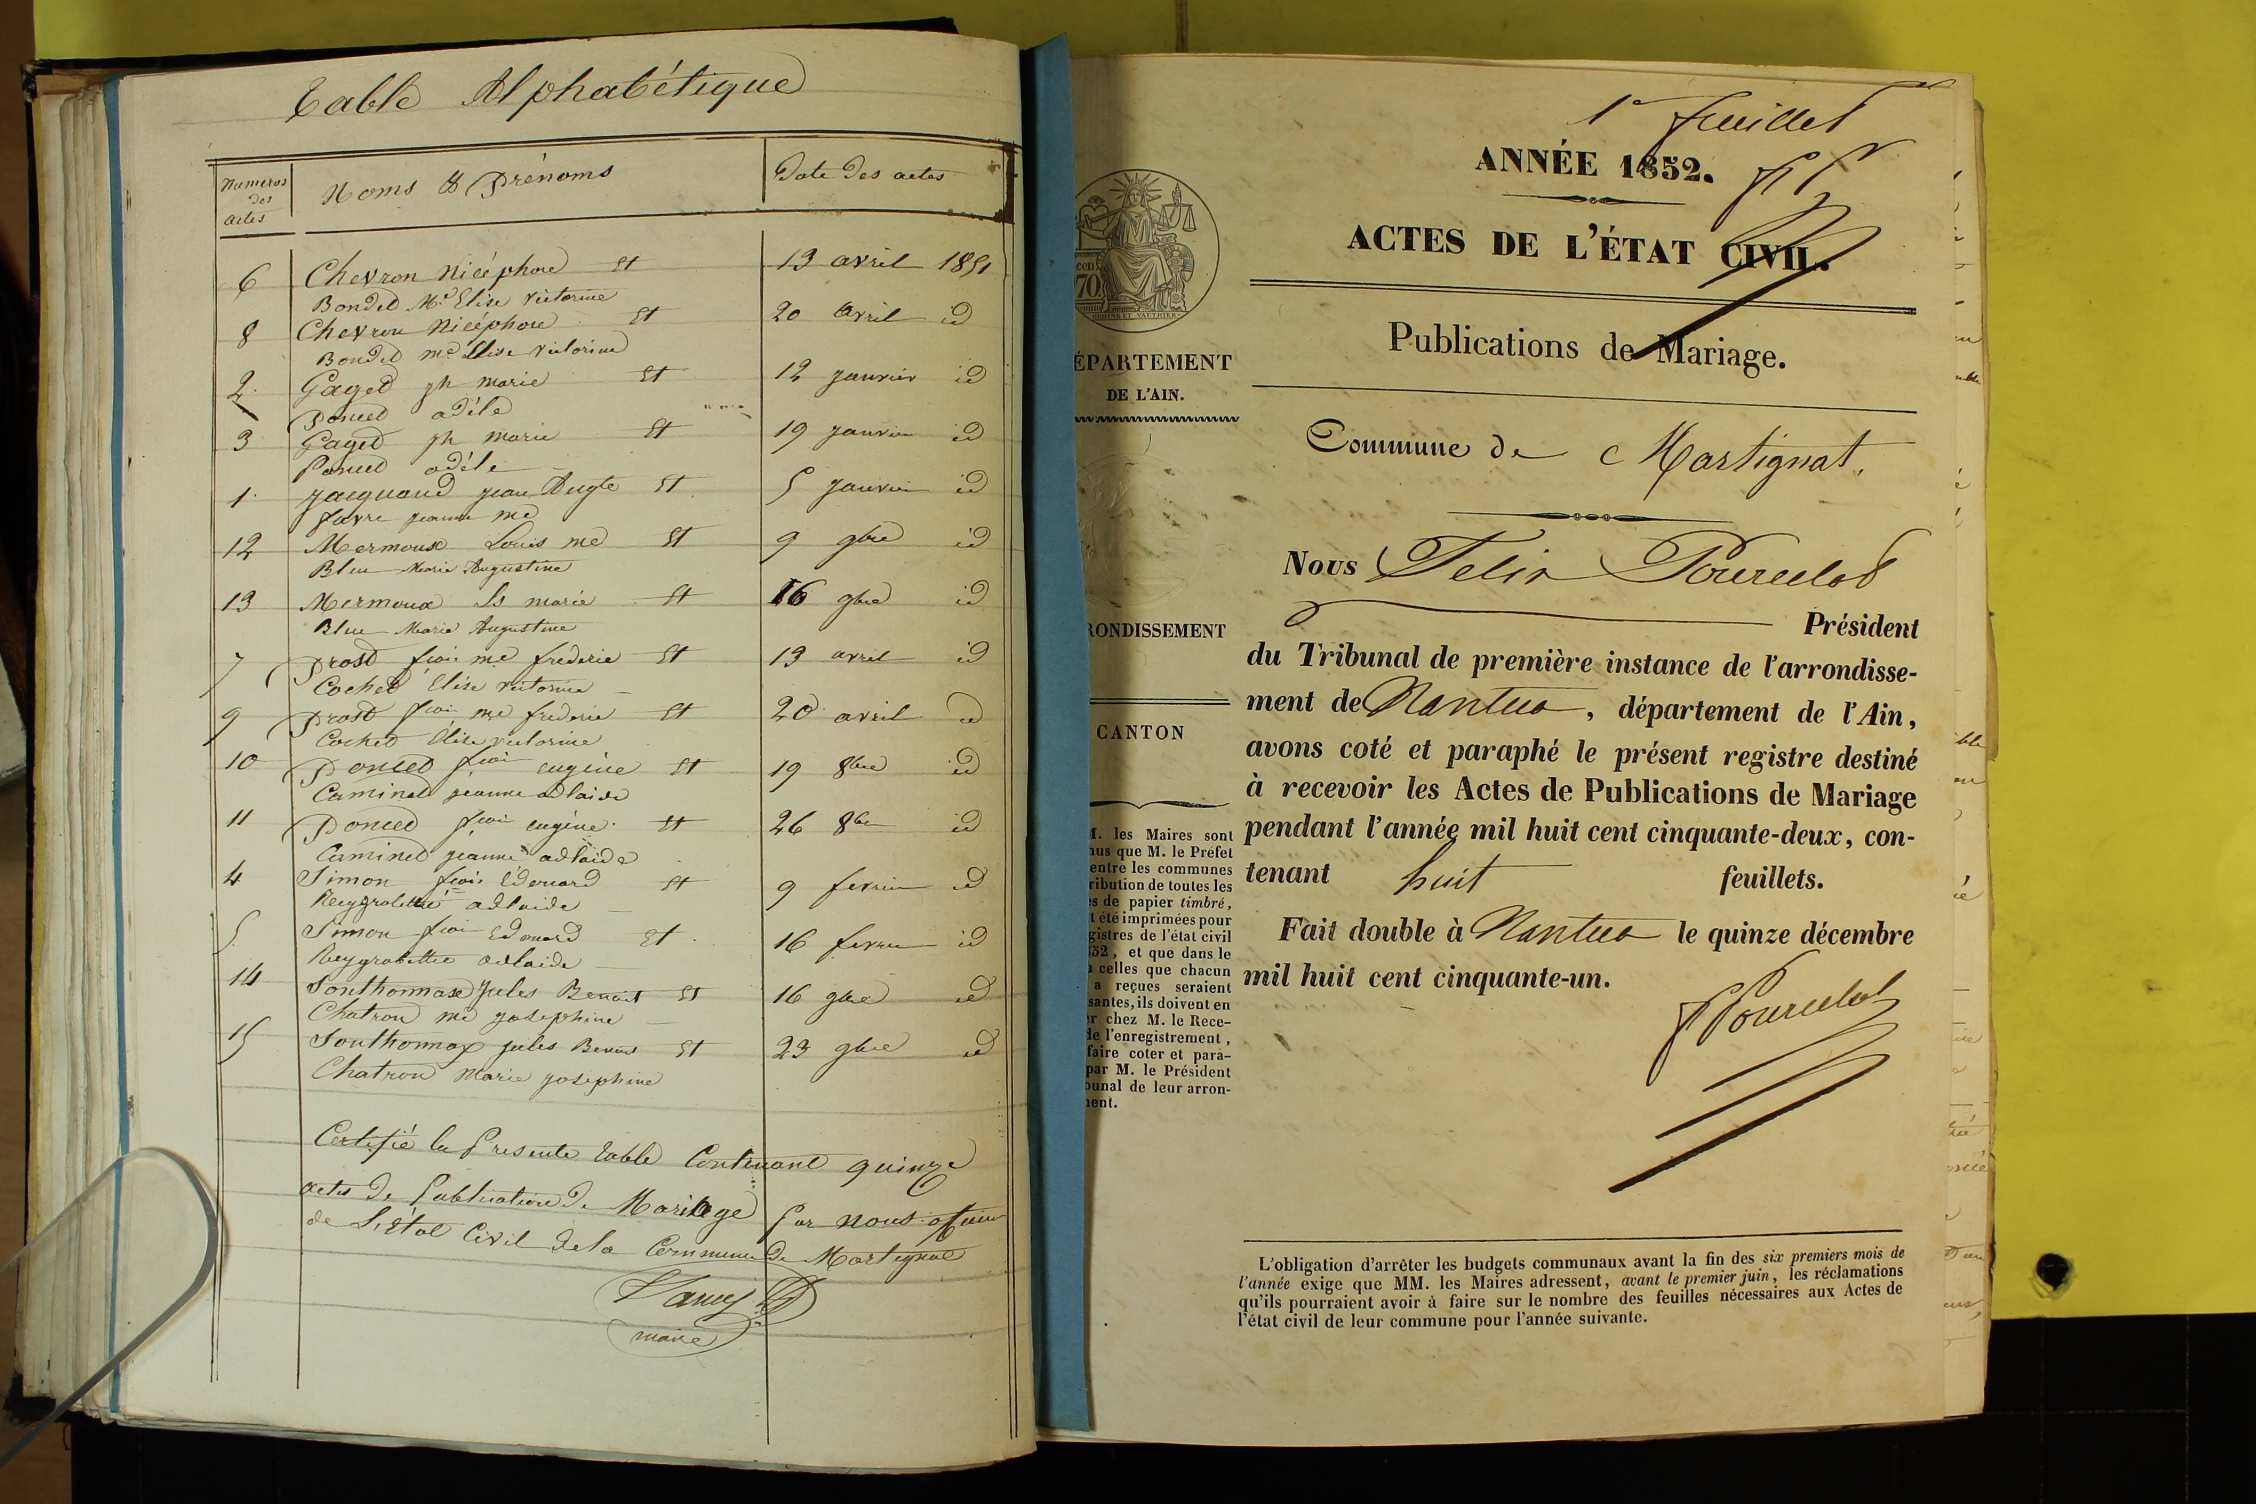 Table Alphabétique
Numeros des actes
Noms & Prénoms
Date des actes
6 Chevron Nicéphore et 13 avril 1851
Bondet Me Elise Victorine
8 Chevron Nicéphore et 20 avril id
Bondet me Elise Victorine
2 Gaget jh marie et 12 janvier id
Poncet adèle
3 Gaget jh marie et 19 janvier id
Poncet adèle
1 Jacquand jean Augte et 5 janvier id
favre jeanne me
12 Mermoux Louis me et 9 9bre id
Blue Marie Augustine
13 Mermoux Ls marie et 16 9bre id
Blue Marie Augustine
7 Prost frois me frederic et 13 avril id
Cochet Elise victorine
9 Prost frois me frederic et 20 avril id
Cochet Elise victorine
10 Poncet frois eugène et 19 8bre id
Caminet jeanne adlaide
11 Poncet frois eugène et 26 8bre id
Caminet jeanne adlaide
4 Simon frois Edouard et 9 fevrier id
Reygrobellet adlaide
5 Simon frois Edouard et 16 fevrier id
Reygrobellet adelaide
14 Sonthonnax Jules Benoit et 16 9bre id
Chatron me josephine
15 Sonthonnax jules Benoit et 23 9bre id
Chatron Marie josephine
Certifié la Presente table Contenant quinze
actes de Publication de Mariage Par nous officier
de L'Etat Civil de la Commune de Martignat
maire
1er feuillet
ANNÉE 1852.
ACTES DE L'ÉTAT CIVIL.
Publications de Mariage.
Commune de Martignat.
70
ÉPARTEMENT
DE L'AIN.
RONDISSEMENT
CANTON
M. les Maires sont
nus que M. le Préfet
entre les communes
ribution de toutes les
s de papier timbré,
t été imprimées pour
gistres de l'état civil
52, et que dans le
celles que chacun
a reçues seraient
santes, ils doivent en
r chez M. le Rece-
de l'enregistrement,
faire coter et para-
par M. le Président
bunal de leur arron-
ment.
Nous Felix Pourcelot
Président
du Tribunal de première instance de l'arrondisse-
ment de Nantua, département de l'Ain,
avons coté et paraphé le présent registre destiné
à recevoir les Actes de Publications de Mariage
pendant l'année mil huit cent cinquante-deux, con-
tenant huit feuillets.
Fait double à Nantua le quinze décembre
mil huit cent cinquante-un.
F Pourcelot
L'obligation d'arrêter les budgets communaux avant la fin des six premiers mois de
l'année exige que MM. les Maires adressent, avant le premier juin, les réclamations
qu'ils pourraient avoir à faire sur le nombre des feuilles nécessaires aux Actes de
l'état civil de leur commune pour l'année suivante.